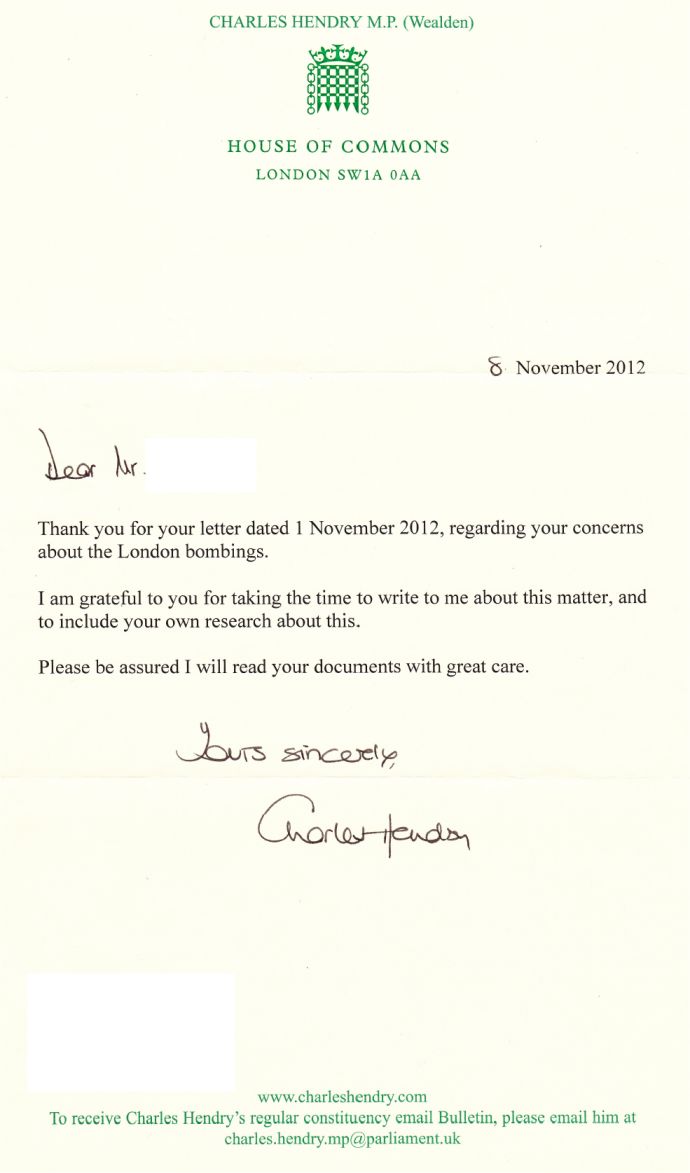 CHARLES HENDRY M.P. (Wealden)
HOUSE OF COMMONS
LONDON SW1A 0AA
8 November 2012
Dear Mr.
Thank you for your letter dated 1 November 2012, regarding your concerns
about the London bombings.
I am grateful to you for taking the time to write to me about this matter, and
to include your own research about this.
Please be assured I will read your documents with great care.
Yours sincerely,
Charles Hendry
www.charleshendry.com
To receive Charles Hendry's regular constituency email Bulletin, please email him at
charles.hendry.mp@parliament.uk